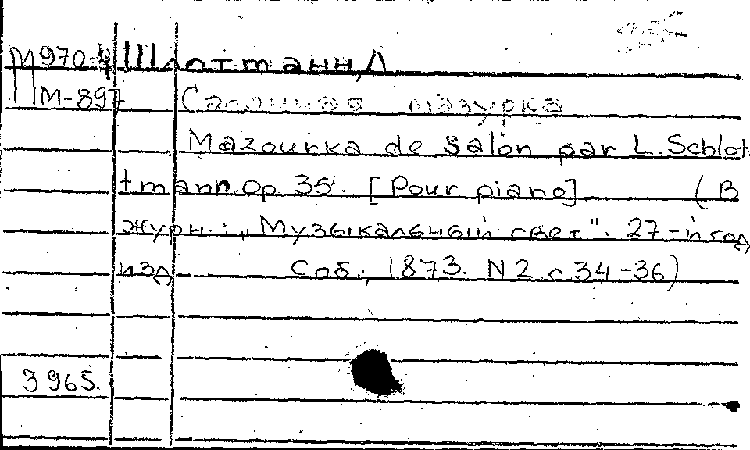 М970-4 Шлотманн, Л
М-897 Салонная мазурка
Mazourka de salon par L. Schlot
tmann Op. 35. [Pour piano] (В
журн.: „Музыкальный свет". 27-й год
изд Спб., 1873. N 2. с 34-36)
3965.